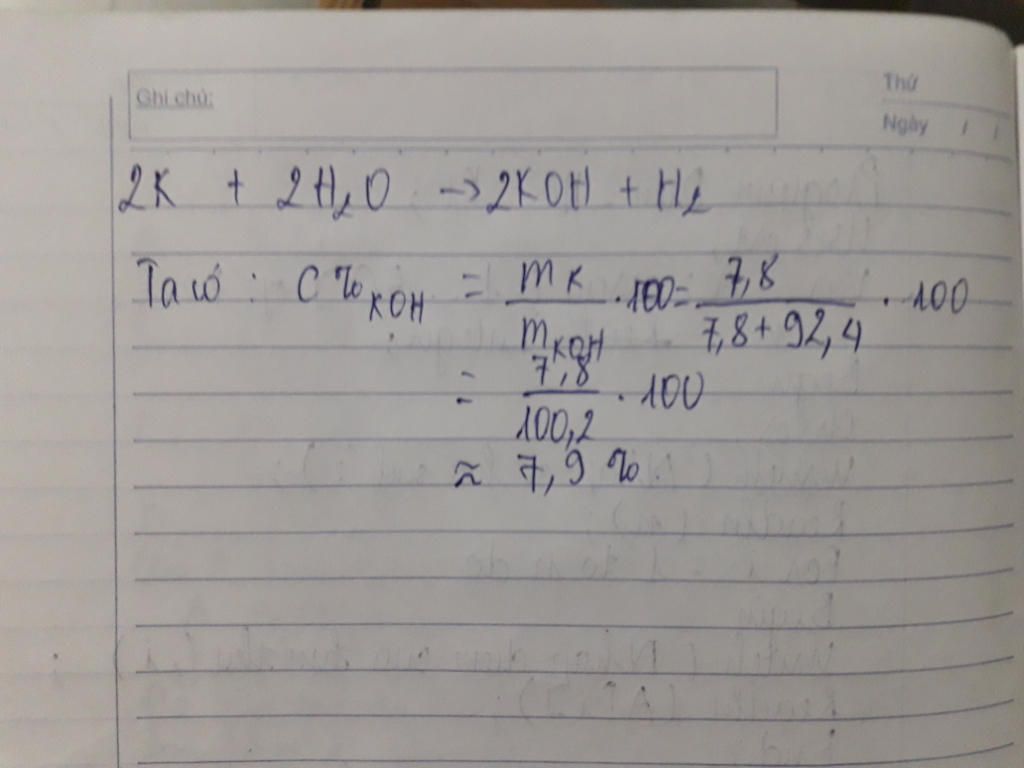 Ghi chú:
Thứ
Ngày / /
2K + 2H₂O → 2KOH + H₂
Ta có : C%KOH = mK / mKOH . 100 = 7,8 / 7,8 + 92,4 . 100
= 7,8 / 100,2 . 100
≈ 7,9 %